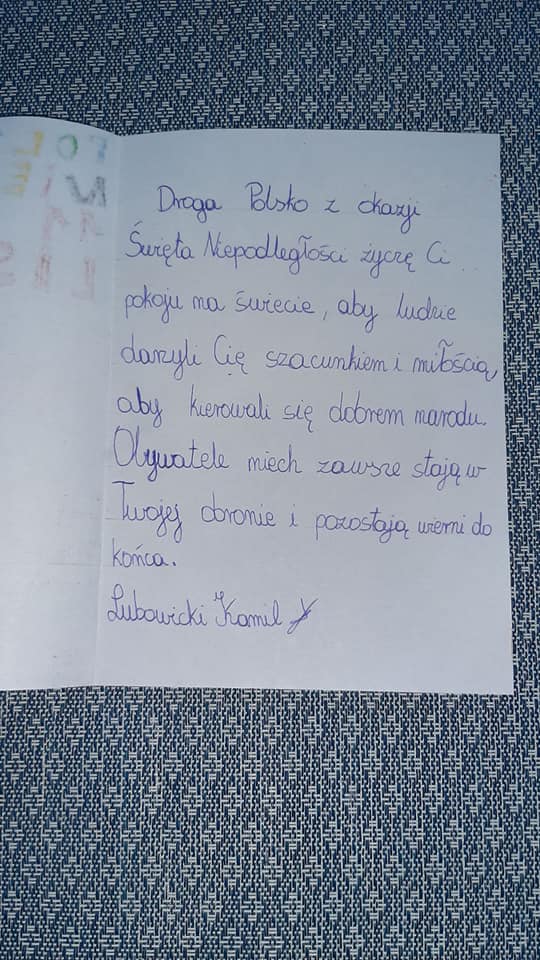 Droga Polsko z okazji
Święta Niepodległości życzę Ci
pokoju na świecie, aby ludzie
darzyli Cię szacunkiem i miłością,
aby kierowali się dobrem narodu.
Obywatele niech zawsze stają w
Twojej obronie i pozostają wierni do
końca.
Lubowicki Kamil